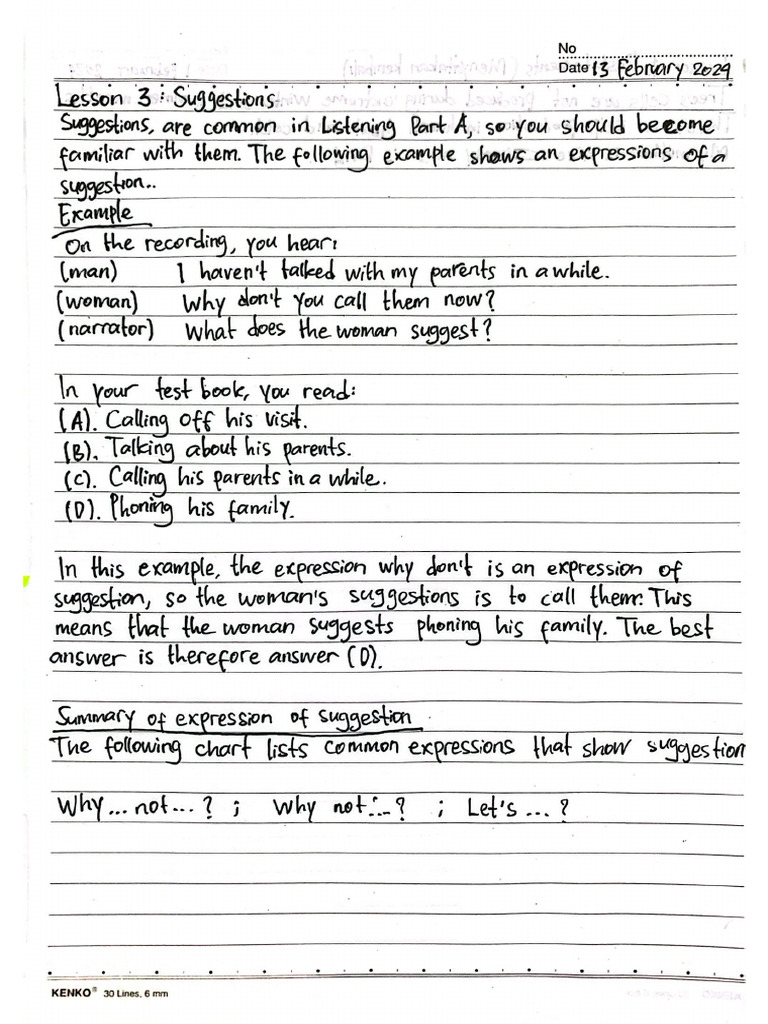 No
Date 13 February 2029
Lesson 3 : Suggestions
Suggestions, are common in Listening Part A, so you should become
familiar with them. The following example shows an expressions of a
suggestion..
Example
On the recording, you hear:
(man) I haven't talked with my parents in a while.
(woman) Why don't you call them now?
(narrator) What does the woman suggest?
In your test book, you read:
(A). Calling off his visit.
(B). Talking about his parents.
(C). Calling his parents in a while.
(D). Phoning his family.
In this example, the expression why don't is an expression of
suggestion, so the woman's suggestions is to call them. This
means that the woman suggests phoning his family. The best
answer is therefore answer (D).
Summary of expression of suggestion
The following chart lists common expressions that show suggestion
Why ... not ... ? ; Why not ... ? ; Let's ... ?
KENKO® 30 Lines, 6 mm